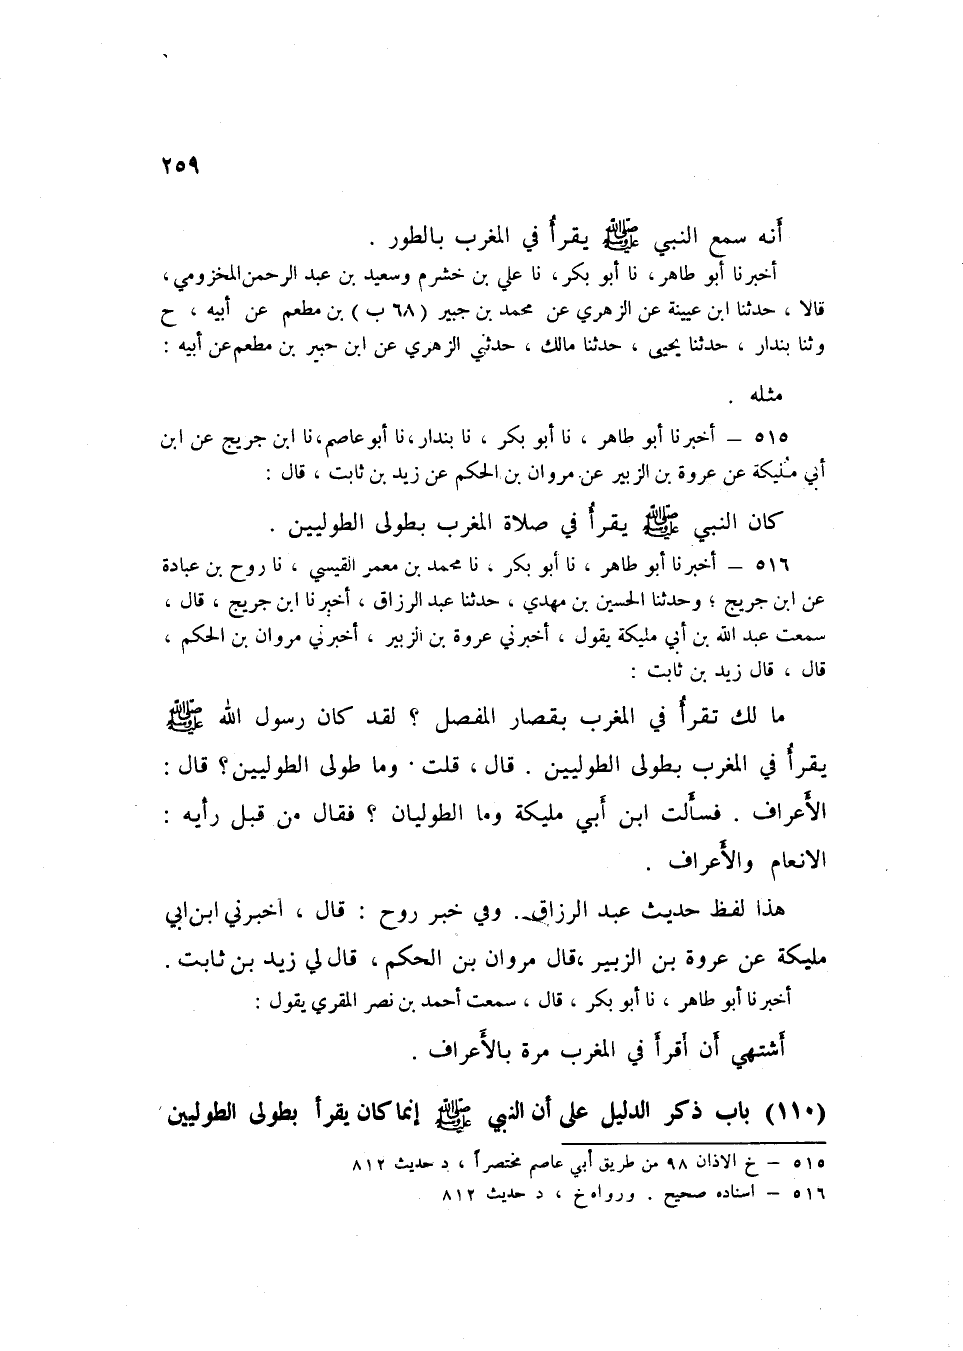 ٢٥٩
أَنه سمع النبي ﷺ يقرأُ في المغرب بالطور .
أخبرنا أبو طاهر ، نا أبو بكر ، نا علي بن خشرم وسعيد بن عبد الرحمن المخزومي ،
قالا ، حدثنا ابن عيينة عن الزهري عن محمد بن جبير ( ٦٨ ب ) بن مطعم عن أبيه ، ح
وثنا بندار ، حدثنا يحيى ، حدثنا مالك ، حدثني الزهري عن ابن جبير بن مطعم عن أبيه :
مثله .
٥١٥ – أخبرنا أبو طاهر ، نا أبو بكر ، نا بندار ، نا أبو عاصم ، نا ابن جريج عن ابن
أبي مُليكة عن عروة بن الزبير عن مروان بن الحكم عن زيد بن ثابت ، قال :
كان النبي ﷺ يقرأُ في صلاة المغرب بطولى الطوليين .
٥١٦ – أخبرنا أبو طاهر ، نا أبو بكر ، نا محمد بن معمر القيسي ، نا روح بن عبادة
عن ابن جريج ؛ وحدثنا الحسين بن مهدي ، حدثنا عبد الرزاق ، أخبرنا ابن جريج ، قال ،
سمعت عبد الله بن أبي مليكة يقول ، أخبرني عروة بن الزبير ، أخبرني مروان بن الحكم ،
قال ، قال زيد بن ثابت :
ما لك تقرأُ في المغرب بقصار المفصل ؟ لقد كان رسول الله ﷺ
يقرأُ في المغرب بطولى الطوليين . قال ، قلت · وما طولى الطوليين ؟ قال :
الأَعراف . فسأَلت ابن أَبي مليكة وما الطوليان ؟ فقال من قبل رأيه :
الانعام والأَعراف .
هذا لفظ حديث عبد الرزاق . وفي خبر روح : قال ، أخبرني ابن ابي
مليكة عن عروة بن الزبير ، قال مروان بن الحكم ، قال لي زيد بن ثابت .
أخبرنا أبو طاهر ، نا أبو بكر ، قال ، سمعت أحمد بن نصر المقري يقول :
أَشتهي أَن أَقرأَ في المغرب مرة بالأَعراف .
(١١٠) باب ذكر الدليل على أن النبي ﷺ إنما كان يقرأ بطولى الطوليين
٥١٥ – خ الاذان ٩٨ من طريق أبي عاصم مختصراً ، د حديث ٨١٢
٥١٦ – اسناده صحيح . ورواه خ ، د حديث ٨١٢